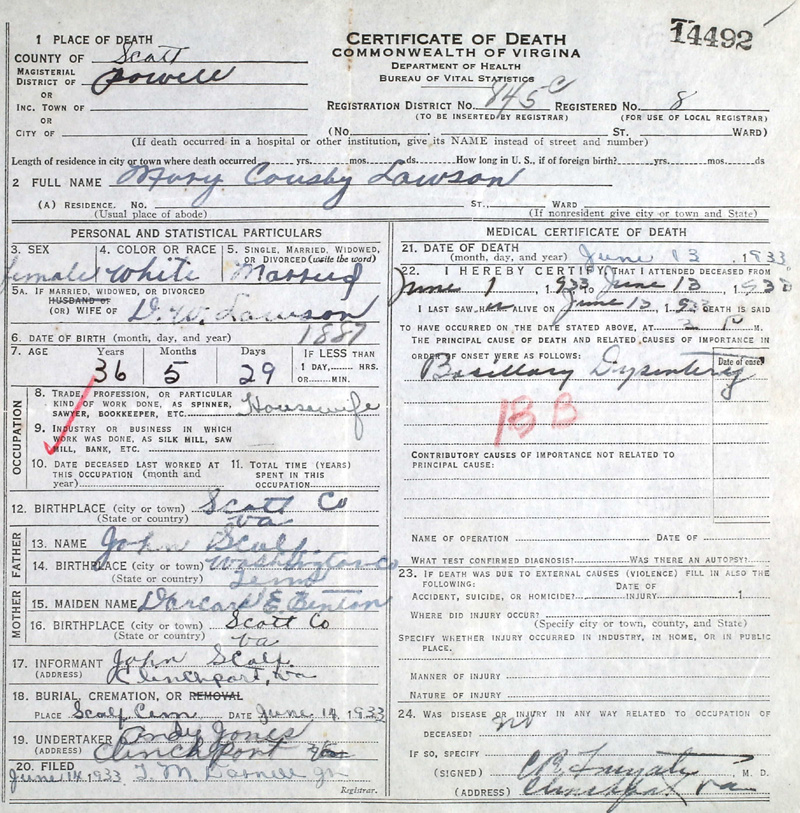 14492
CERTIFICATE OF DEATH
COMMONWEALTH OF VIRGINA
DEPARTMENT OF HEALTH
BUREAU OF VITAL STATISTICS
1 PLACE OF DEATH
COUNTY OF Scott
MAGISTERIAL DISTRICT OF Powell
OR
INC. TOWN OF
OR
CITY OF
REGISTRATION DISTRICT NO. 845C REGISTERED NO. 8
(TO BE INSERTED BY REGISTRAR) (FOR USE OF LOCAL REGISTRAR)
(No. ST. WARD)
(If death occurred in a hospital or other institution, give its NAME instead of street and number)
Length of residence in city or town where death occurred yrs. mos. ds. How long in U. S., if of foreign birth? yrs. mos. ds
2 FULL NAME Mary Cousby Lawson
(A) RESIDENCE. No. ST., WARD
(Usual place of abode) (If nonresident give city or town and State)
PERSONAL AND STATISTICAL PARTICULARS
3. SEX 4. COLOR OR RACE 5. SINGLE, MARRIED, WIDOWED, OR DIVORCED (write the word)
female White Married
5A. IF MARRIED, WIDOWED, OR DIVORCED
HUSBAND OF
(OR) WIFE OF D. W. Lawson
6. DATE OF BIRTH (month, day, and year) 1887
7. AGE Years Months Days IF LESS THAN
36 5 29 1 DAY, HRS.
OR MIN.
OCCUPATION
8. TRADE, PROFESSION, OR PARTICULAR
KIND OF WORK DONE, AS SPINNER,
SAWYER, BOOKKEEPER, ETC. Housewife
9. INDUSTRY OR BUSINESS IN WHICH
WORK WAS DONE, AS SILK MILL, SAW
MILL, BANK, ETC.
10. DATE DECEASED LAST WORKED AT THIS OCCUPATION (month and year)
11. TOTAL TIME (YEARS) SPENT IN THIS OCCUPATION
12. BIRTHPLACE (city or town) Scott Co
(State or country) Va
FATHER
13. NAME John Scalf
14. BIRTHPLACE (city or town) Washington Co
(State or country) Tenn
MOTHER
15. MAIDEN NAME Darcas E. Benton
16. BIRTHPLACE (city or town) Scott Co
(State or country) Va
17. INFORMANT John Scalf
(ADDRESS) Clinchport, Va
18. BURIAL, CREMATION, OR REMOVAL
PLACE Scalf Cem DATE June 14, 1933
19. UNDERTAKER Andy Jones
(ADDRESS) Clinchport Va
20. FILED
June 14 1933 T. M. Darnell Jr
Registrar.
MEDICAL CERTIFICATE OF DEATH
21. DATE OF DEATH
(month, day, and year) June 13, 1933
22. I HEREBY CERTIFY, THAT I ATTENDED DECEASED FROM
June 1, 1933 TO June 13, 1933
I LAST SAW H ALIVE ON June 13, 1933 DEATH IS SAID
TO HAVE OCCURRED ON THE DATE STATED ABOVE, AT 3 P M.
THE PRINCIPAL CAUSE OF DEATH AND RELATED CAUSES OF IMPORTANCE IN
ORDER OF ONSET WERE AS FOLLOWS: Date of onset
Bacillary Dysentery
13 B
CONTRIBUTORY CAUSES OF IMPORTANCE NOT RELATED TO
PRINCIPAL CAUSE:
NAME OF OPERATION DATE OF
WHAT TEST CONFIRMED DIAGNOSIS? WAS THERE AN AUTOPSY?
23. IF DEATH WAS DUE TO EXTERNAL CAUSES (VIOLENCE) FILL IN ALSO THE
FOLLOWING:
ACCIDENT, SUICIDE, OR HOMICIDE? DATE OF INJURY 1
WHERE DID INJURY OCCUR?
(Specify city or town, county, and State)
SPECIFY WHETHER INJURY OCCURRED IN INDUSTRY, IN HOME, OR IN PUBLIC
PLACE.
MANNER OF INJURY
NATURE OF INJURY
24. WAS DISEASE OR INJURY IN ANY WAY RELATED TO OCCUPATION OF
DECEASED? no
IF SO, SPECIFY
(SIGNED) C. B. M. D.
(ADDRESS) Clinchport Va